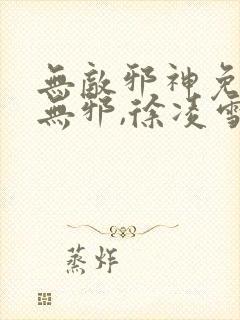 無敵邪神免
無邪,徐凌雪
蒸炸